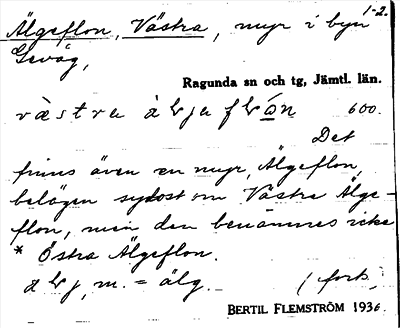 1-2.
Älgeflon, Västra, myr i byn
Gevåg,
Ragunda sn och tg, Jämtl. län.
600.
Det
finns även en myr, Älgeflon,
belägen sydost om Västra Älge-
flon, men den benämnes icke
* Östra Älgeflon.
m. = älg. (forts.)
BERTIL FLEMSTRÖM 1936.